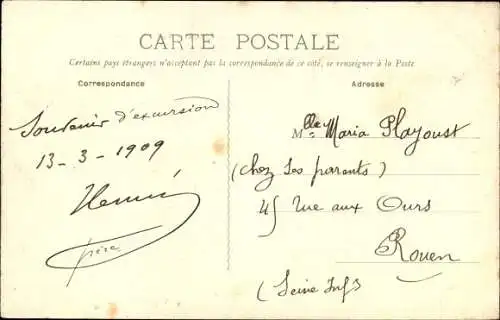 CARTE POSTALE
Certains pays étrangers n'acceptant pas la correspondance de ce côté, se renseigner à la Poste
Correspondance
Adresse
Souvenir d'excursion
13-3-1909
Henri
frère
Mlle Maria Playoust
(chez ses parents)
45 rue aux Ours
Rouen
(Seine Infre